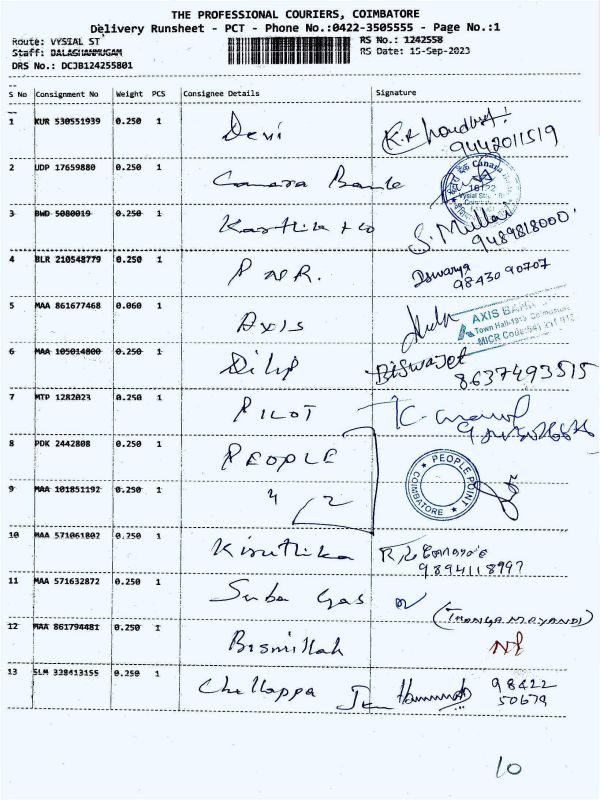 THE PROFESSIONAL COURIERS, COIMBATORE
Delivery Runsheet - PCT - Phone No.:0422-3505555 - Page No.:1
Route: VYSIAL ST RS No.: 1242558
Staff: BALASHANMUGAM RS Date: 15-Sep-2023
DRS No.: DCJB124255801
S No Consignment No Weight PCS Consignee Details Signature
1 KUR 530551939 0.250 1 Devi
9442011519
2 UDP 17659880 0.250 1 Canara Bank Canara
18122
3 BWD 5080019 0.250 1 Karthik + co S. Mullai
9489818000
4 BLR 210548779 0.250 1 PNR. Iswarya
98430 90707
5 MAA 861677468 0.060 1 AXIS AXIS BANK
Town Hall
MICR Code:641 211
6 MAA 105014800 0.250 1 Dilip Biswajet
8637493515
7 MTP 1282023 0.250 1 PILOT
8 PDK 2442808 0.250 1 PEOPLE PEOPLE POINT
COIMBATORE
9 MAA 101851192 0.250 1 " 2
10 MAA 571061802 0.250 1 Kiruthika
9894118997
11 MAA 571632872 0.250 1 Suba Gas
(THANGAMAYANDI)
12 MAA 861794481 0.250 1 Bismillah
13 SLM 328413155 0.250 1 Chellappa 98422
50679
10